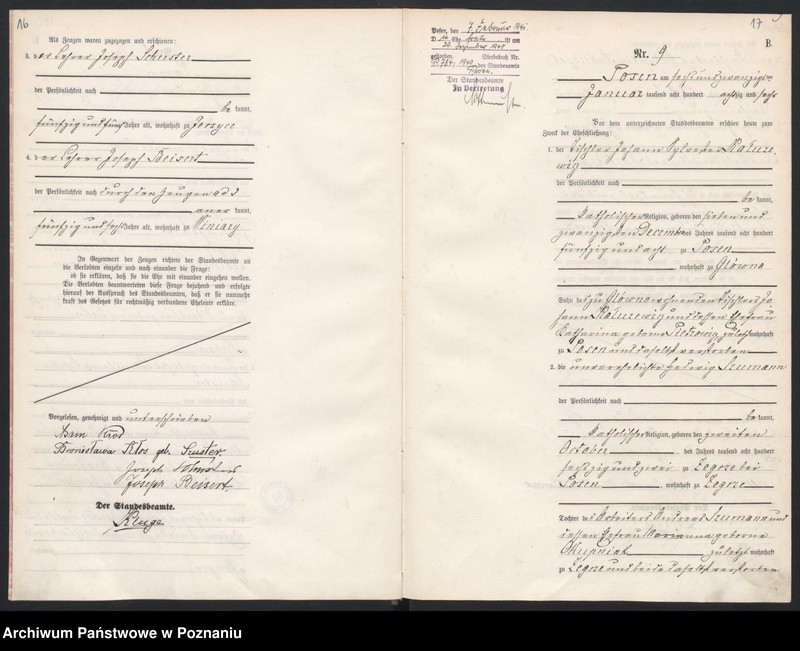 16
Als Zeugen waren zugezogen und erschienen:
3. der Lehrer Joseph Schuster
der Persönlichkeit nach
be kannt,
fünfzig und fünf Jahre alt, wohnhaft zu Jerzyce
4. der Lehrer Joseph Beisert
der Persönlichkeit nach durch den Zeugen ad 3
aner kannt,
fünfzig und sechs Jahre alt, wohnhaft zu Winiary
In Gegenwart der Zeugen richtete der Standesbeamte an
die Verlobten einzeln und nach einander die Frage:
ob sie erklären, daß sie die Ehe mit einander eingehen wollen.
Die Verlobten beantworteten diese Frage bejahend und erfolgte
hierauf der Ausspruch des Standesbeamten, daß er sie nunmehr
kraft des Gesetzes für rechtmäßig verbundene Eheleute erkläre.
Vorgelesen, genehmigt und unterschrieben
Adam
Bronisława Kłos geb. Szuster
Joseph
Joseph Beisert.
Der Standesbeamte.
Kluge
17
B.
Posen, den 7. Februar 1941
Uhr ist am
20. Dezember 1940
gestorben. Sterbebuch Nr.
1940 des Standesamts
Posen.
Der Standesbeamte
In Vertretung
Nr. 9
Posen am sechsundzwanzigsten
Januar tausend acht hundert achtzig und sechs
Vor dem unterzeichneten Standesbeamten erschien heute zum
Zweck der Eheschließung:
1. der Tischler Johann Sylvester
der Persönlichkeit nach
be kannt,
katholischer Religion, geboren den sieben und
zwanzigsten December des Jahres tausend acht hundert
fünfzig und acht zu Posen
, wohnhaft zu Główno
Sohn des zu Główno wohnenden Tischlers Jo
hann und dessen Ehefrau
Katharina geborne zuletzt wohnhaft
zu Posen und daselbst verstorben
2. die unverehelichte Hedwig Szumann
der Persönlichkeit nach
be kannt,
katholischer Religion, geboren den zweiten
October des Jahres tausend acht hundert
sechzig und zwei zu Żegrze bei
Posen, wohnhaft zu Żegrze
Tochter des Arbeiters Andreas Szumann und
dessen Ehefrau Marianna geborne
Chupniak zuletzt wohnhaft
zu Żegrze und beide daselbst verstorben
Archiwum Państwowe w Poznaniu